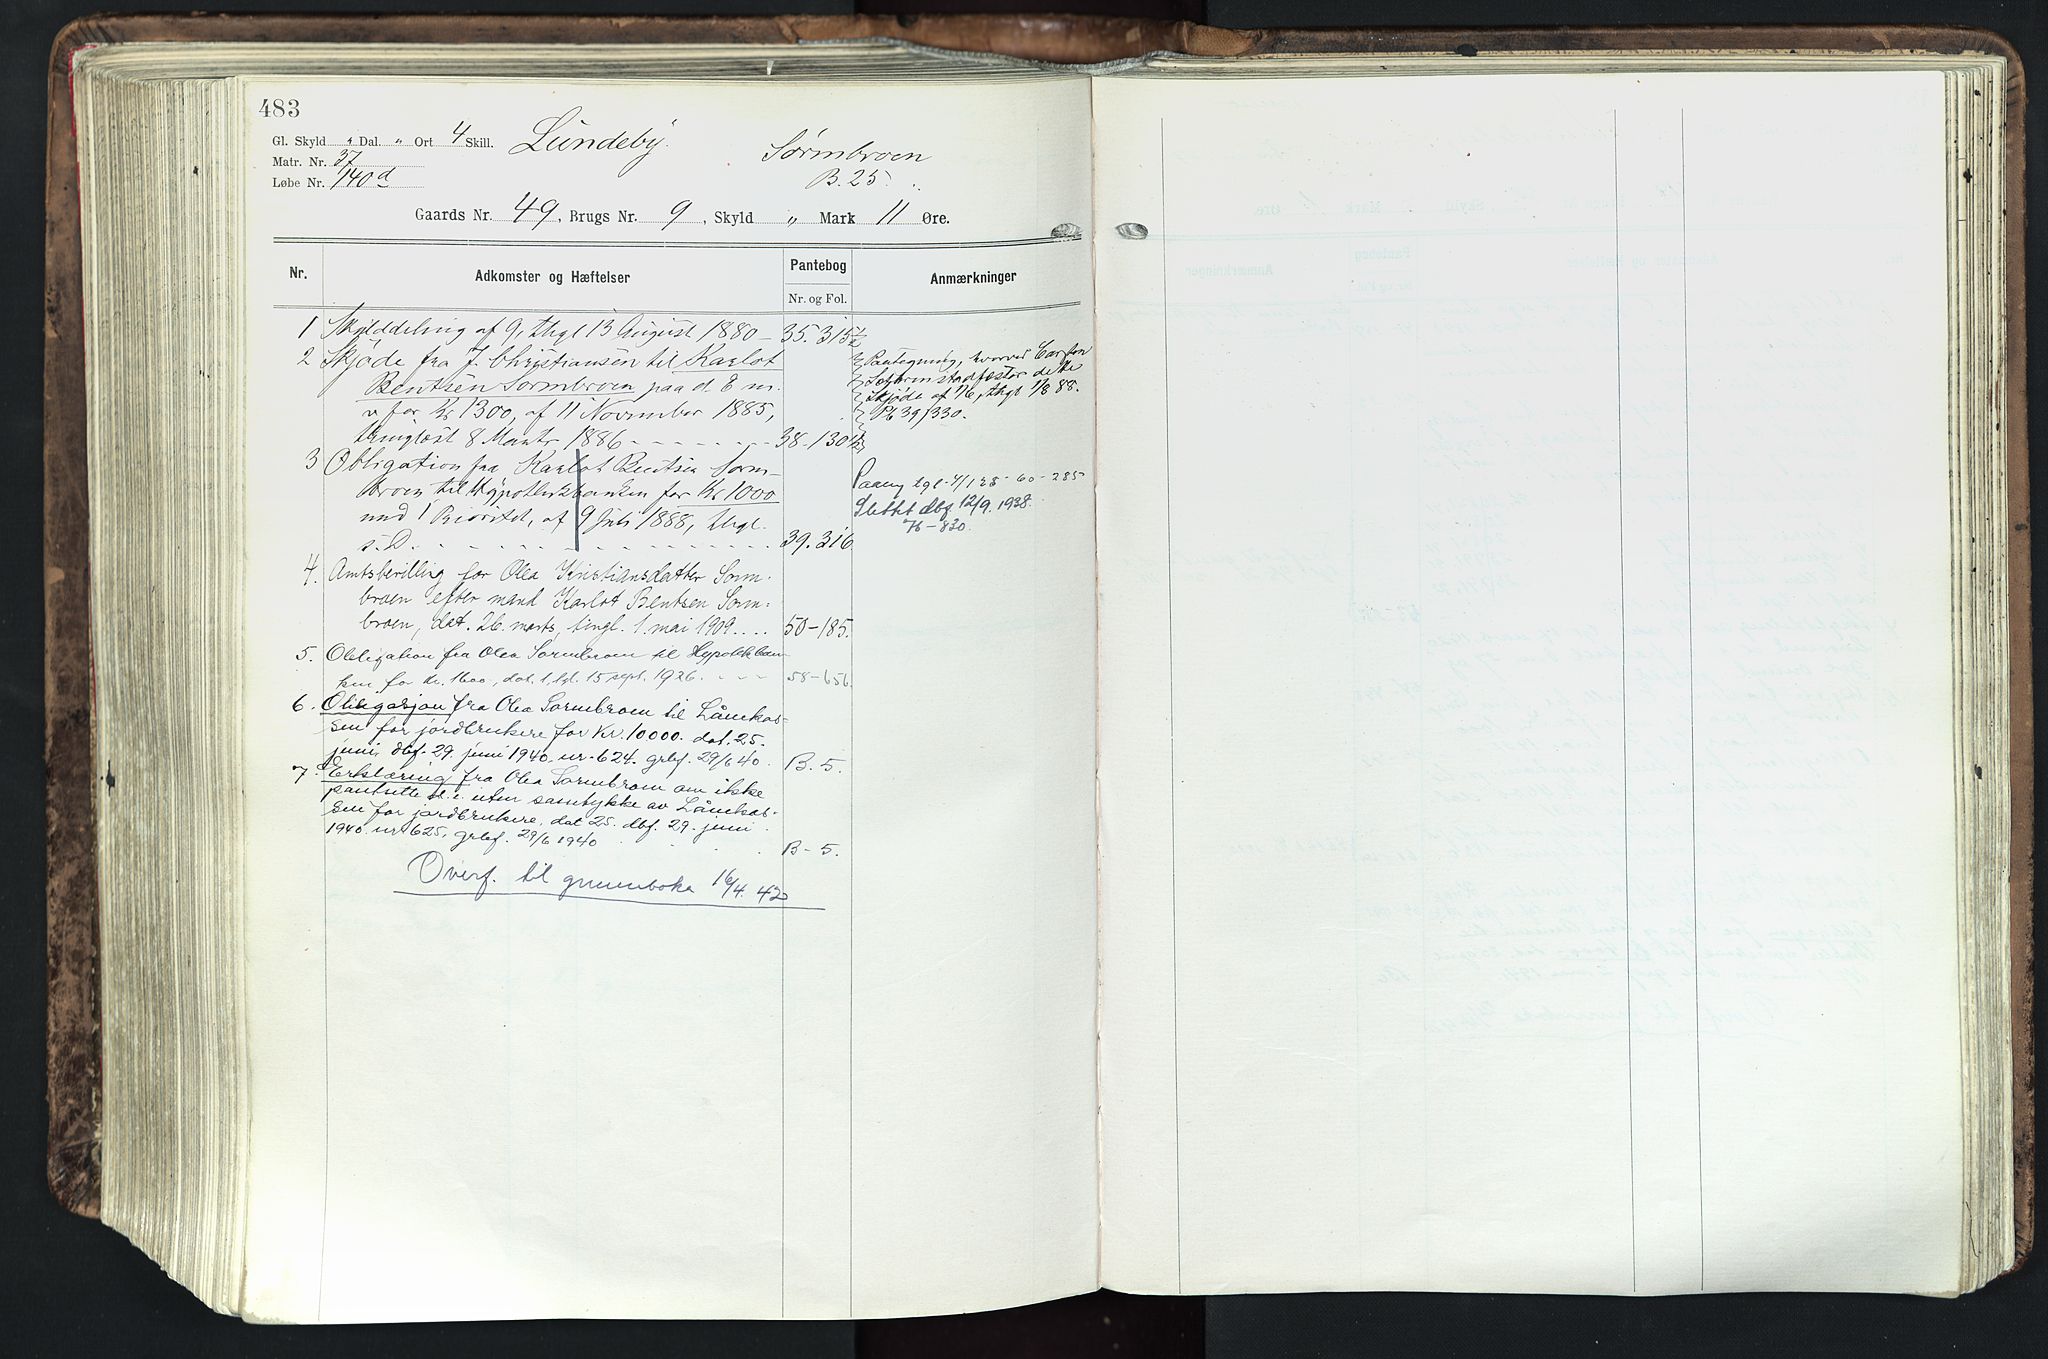 483
Gl. Skyld „ Dal. „ Ort 4 Skill. Lundeby. Sørmbroen
Matr. Nr. 37
Løbe Nr. 140 d B. 25.
Gaards Nr. 49, Brugs Nr. 9, Skyld „ Mark 11 Øre.
Nr. Adkomster og Hæftelser Pantebog Anmærkninger
Nr. og Fol.
1 Skylddeling af 9, thgl 13 August 1880 - 35. 315 1/2
2 Skjøde fra J. Christiansen til Karlot
Bentsen Sormbroen paa d. E. m.
v for Kr 1300, af 11 November 1885,
thinglæst 8 Marts 1886 - - - - - - - 38-130 1/2
Pantegning, hvorved Carsten
stadfæster dette
Skjøde af 1/6, thgl 1/8 88.
Pb 39/330.
3 Obligation fra Karlot Bentsen Sorm-
broen til Hypothekbanken for Kr 1000
med 1 Prioritet, af 9 Juli 1888, thgl.
s. D. - - - - - - - - 39. 316
tgl. 60-285
Slettet dbf 12/9. 1938.
76-830.
4. Amtsbevilling for Olea Kristiansdatter Sorm-
broen efter mand Karlot Bentsen Sorm-
broen, dat. 26. marts, tingl. 1. mai 1909. . . . 50-185.
5. Obligation fra Olea Sormbroen til Hypotekban-
ken for Kr. 1600, dat. 1, tgl. 15 sept. 1926. - - - 58-656.
6. Obligasjon fra Olea Sormbroen til Lånekas-
sen for jordbrukere for Kr. 10000. dat. 25.
juni, dbf. 29. juni 1940. nr. 624. grbf. 29/6 40. B. 5.
7. Erklæring fra Olea Sormbroen om ikke
pantsette d. e. uten samtykke av Lånekas-
sen for jordbrukere, dat 25. dbf. 29. juni
1940. nr 625, grbf. 29/6 1940 . . . . B-5.
Overf. til grunnboka 16/4. 42